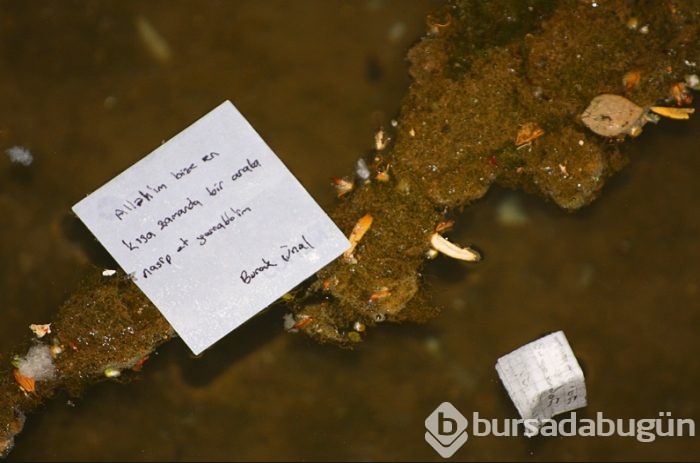 Allah'ım bize en
kısa zamanda bir araba
nasip et yarabbim
Burak Ünal
bursadabugün